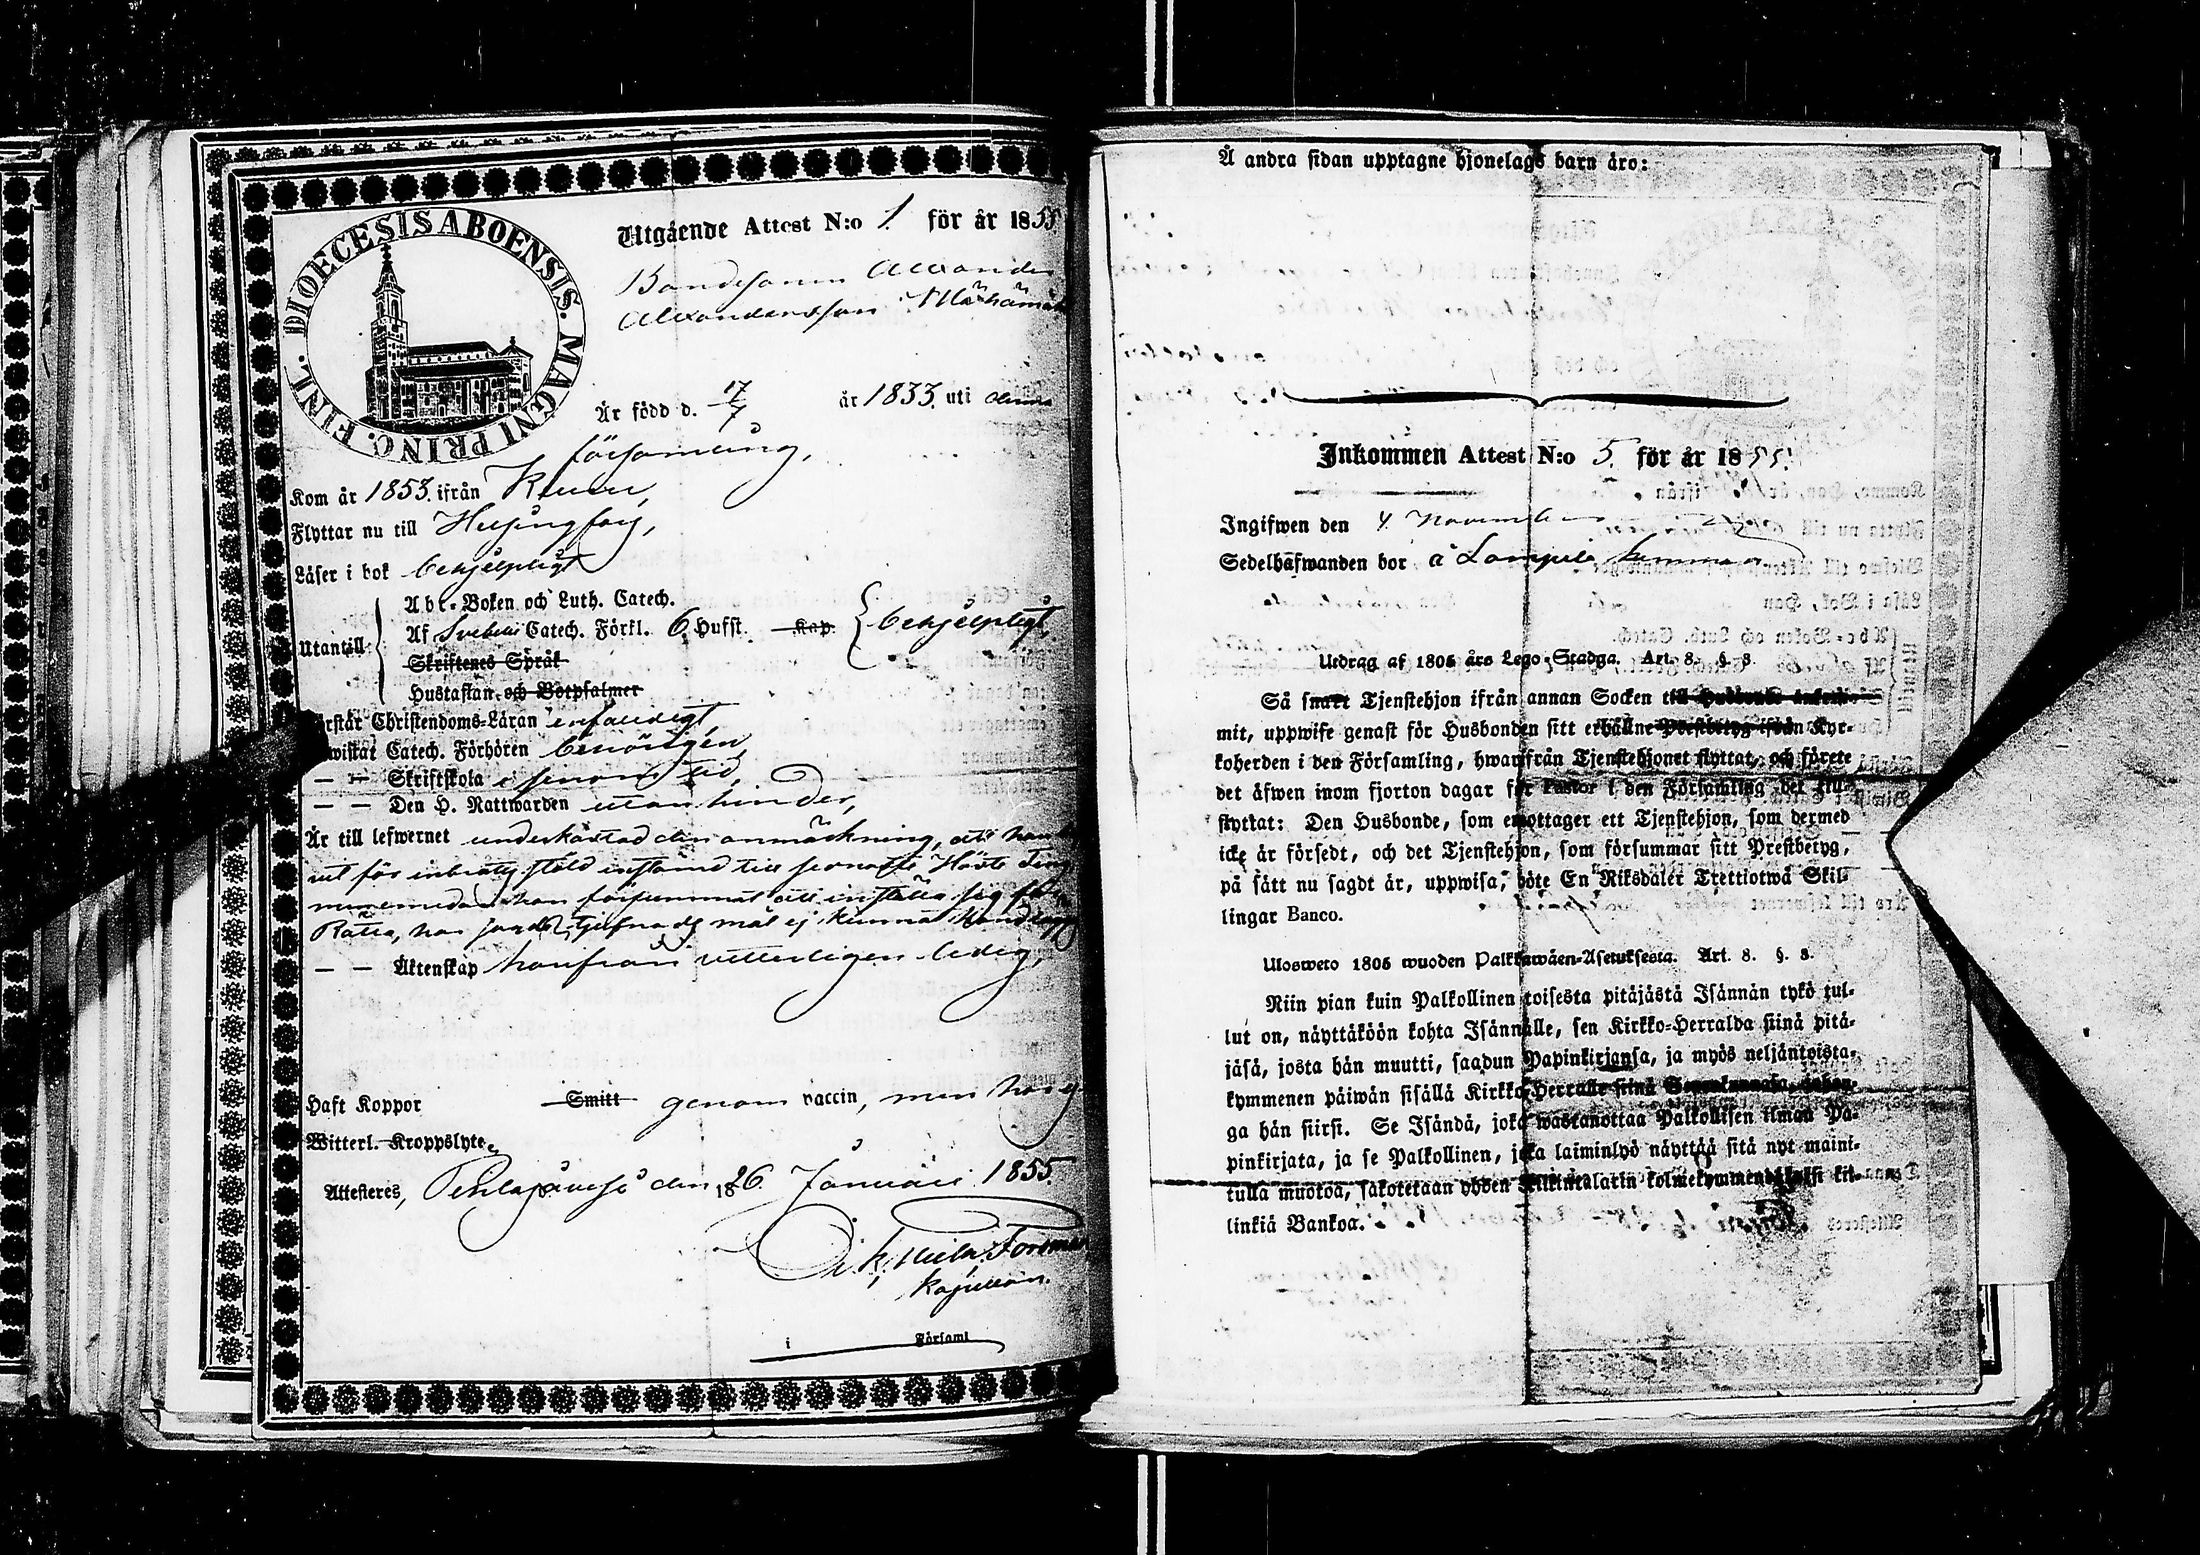 DIOECESIS ABOENSIS. MAGNI PRINC. FINL.
Utgående Attest N:o 1. för år 1855
Bondesonen Alexander
Alexandersson
Är född d. 17/7 år 1833. uti denna
församling,
Kom år 1853. ifrån
Flyttar nu till Helsingfors,
Läser i bok behjelpligt
Utantill: Abc-Boken och Luth. Catech.
Af Svebelii Catech. Förkl. 6. Hufst. Kap. behjelpligt,
Skriftenes Språk
Hustaflan och Botpsalmer
Förstår Christendoms-Läran enfaldigt,
Bewistat Catech. Förhören behörigen,
— — Skriftskola i senare tid,
— — Den H. Nattwarden utan hinder,
Är till lefwernet underkastad den anmärkning, att han
för inbrotts stöld instämd till senaste Höste Ting
men medan han försummat att inställa sig för
Rätta, har mål ej kunnat
— — Äktenskap härifrån vetterligen ledig,
Haft Koppor Smitt genom vaccin, men har
Witterl. Kroppslyte
Attesteres, den 18 26 Januari 1855.
Forsman
Kapellan.
i Församl
Å andra sidan upptagne hjonelags barn äro:
Inkommen Attest N:o 5. för år 1855.
Ingifwen den 4 November
Sedelhafwanden bor å
Utdrag af 1805 års Lego-Stadga. Art. 8. §. 8.
Så snart Tjenstehjon ifrån annan Socken till Husbonde ankom-
mit, uppwise genast för Husbonden sitt erhållne Prestbetyg ifrån Kyr-
koherden i den Församling, hwarifrån Tjenstehjonet flyttat, och förete
det äfwen inom fjorton dagar för Pastor i den Församling det in-
flyttat: Den Husbonde, som emottager ett Tjenstehjon, som dermed
icke är försedt, och det Tjenstehjon, som försummar sitt Prestbetyg,
på sätt nu sagdt är, uppwisa, böte En Riksdaler Trettiotwå Skil-
lingar Banco.
Ulosweto 1805 wuoden Palkkawäen-Asetuksesta. Art. 8. §. 8.
Niin pian kuin Palkollinen toisesta pitäjästä Isännän tykö tul-
lut on, näyttäköön kohta Isännälle, sen Kirkko-Herralda siinä pitä-
jäsä, josta hän muutti, saadun Papinkirjansa, ja myös neljäntoista-
kymmenen päiwän sisällä Kirkko-Herralle siinä Seurakunnasa, johon-
ga hän siirsi. Se Isändä, joka wastanottaa Palkollisen ilman Pa-
pinkirjata, ja se Palkollinen, joka laiminlyö näyttää sitä nyt maini-
tulla muotoa, sakotetaan yhden Riikintalarin kolmekymmendäkaksi kil-
linkiä Bankoa.